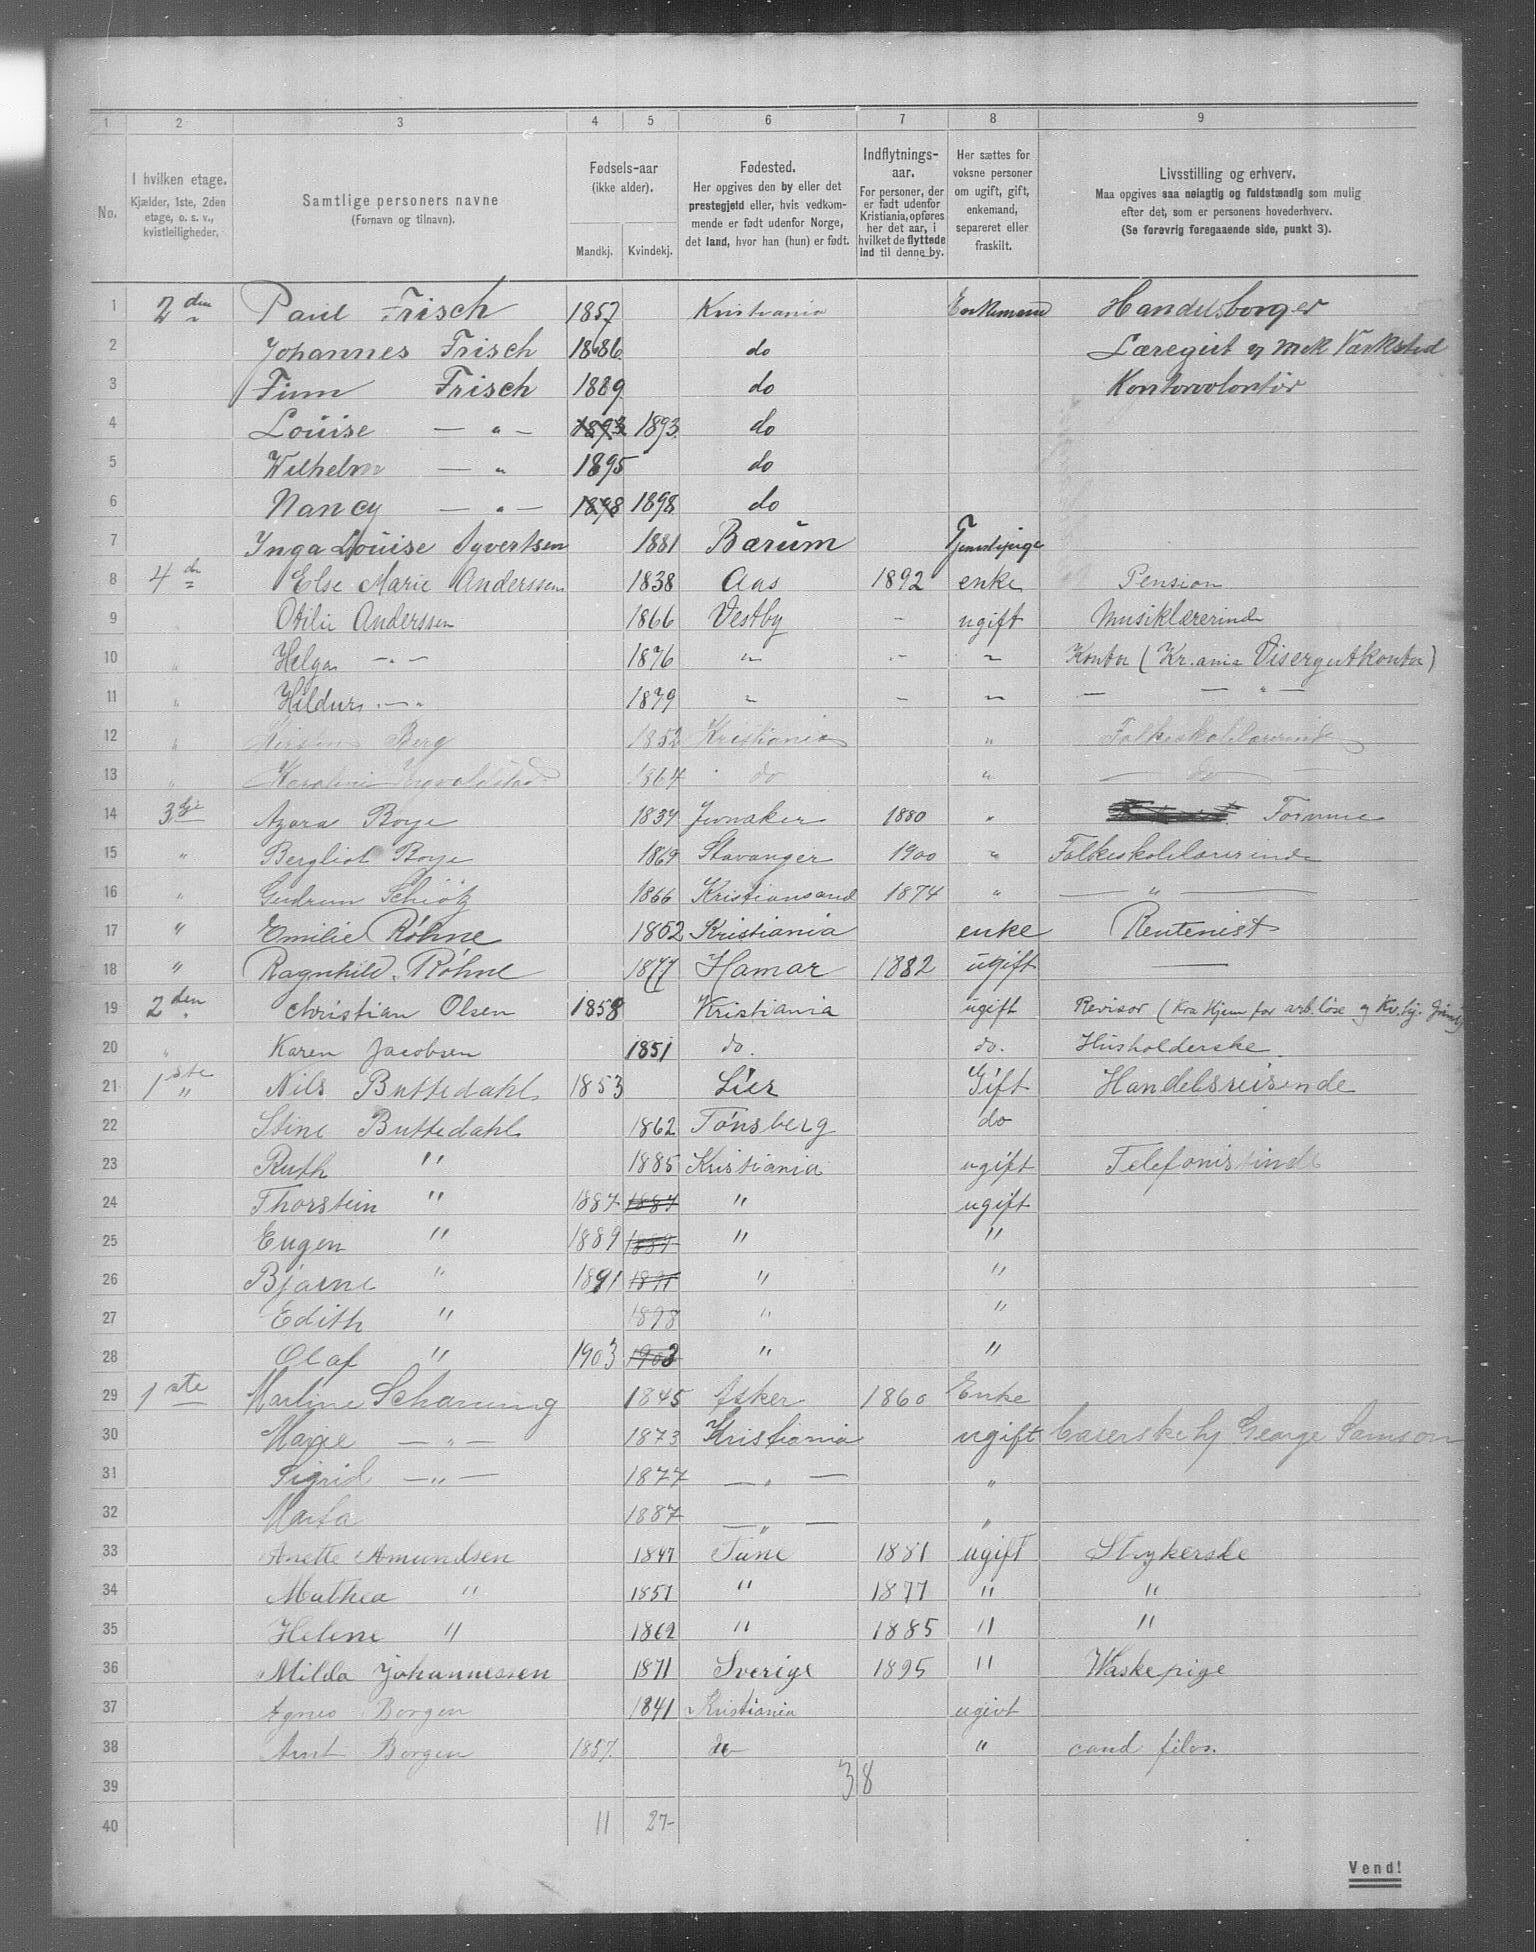 1 2 3 4 5 6 7 8 9
No.
I hvilken etage.
Kjælder, 1ste, 2den
etage, o. s. v.,
kvistleiligheder.
Samtlige personers navne
(Fornavn og tilnavn).
Fødsels-aar
(ikke alder).
Mandkj. Kvindekj.
Fødested.
Her opgives den by eller det
prestegjeld eller, hvis vedkom-
mende er født udenfor Norge,
det land, hvor han (hun) er født.
Indflytnings-
aar.
For personer, der
er født udenfor
Kristiania, opføres
her det aar, i
hvilket de flyttede
ind til denne by.
Her sættes for
voksne personer
om ugift, gift,
enkemand,
separeret eller
fraskilt.
Livsstilling og erhverv.
Maa opgives saa nøiagtig og fuldstændig som mulig
efter det, som er personens hovederhverv.
(Se forøvrig foregaaende side, punkt 3).
1 2den Paul Frisch 1857 Kristiania Enkemand Handelsborger
2 Johannes Frisch 1886 do Læregut y mek Værksted
3 Finn Frisch 1889 do Kontorvolontør
4 Louise — " — 1893 1893 do
5 Wilhelm — " 1895 do
6 Nancy — " — 1898 1898 do
7 Ynga Louise Syvertsen 1881 Bærum Tjenestepige
8 4de Else Marie Anderssen 1838 Aas 1892 enke Pension
9 Otilie Anderssen 1866 Vestby - ugift Musiklærerinde
10 " Helga — " — 1876 " - " Kontor (Kr.ania Visergutkontor)
11 " Hildur — " 1879 " - " — — " —
12 " Kirsten Berg 1852 Kristiania " Folkeskolelærerinde
13 " 1864 do " — do —
14 3dje Azora Boye 1839 Jevnaker 1880 "
15 " Bergliot Boye 1869 Stavanger 1900 " Folkeskolelærerinde
16 " Gudrun Schiøtz 1866 Kristiansand 1874 " — " —
17 " Emilie Røhne 1852 Kristiania enke Rentenist
18 " Ragnhild Røhne 1877 Hamar 1882 ugift —
19 2den Christian Olsen 1858 Kristiania ugift Revisor (Kra Hjem for arb.løse og
20 " Karen Jacobsen 1851 do. do. Husholderske.
21 1ste " Nils Buttedahl 1853 Lier Gift Handelsreisende
22 Stine Buttedahl 1862 Tønsberg do
23 Ruth " 1885 Kristiania ugift Telefonistinde
24 Thorstein " 1887 1887 " ugift
25 Eugen " 1889 1889 " "
26 Bjarne " 1891 1891 " "
27 Edith " 1898 " "
28 Olaf " 1903 1903 " "
29 1ste Martine Schaning 1845 Asker 1860 Enke
30 — " — 1873 Kristiania ugift Caserske hj George Samson
31 Sigrid — " — 1877 — " — "
32 Marta 1887 — " — "
33 Anette Amundsen 1847 Tune 1881 ugift Strykerske
34 Mathea " 1857 " 1877 " "
35 Helene " 1862 " 1885 " "
36 Milda Johannessen 1871 Sverige 1895 " Vaskepige
37 Agnes Borgen 1841 Kristiania ugivt
38 Arnt Borgen 1857. do " cand filos.
39 38
40 11 27-
Vend!